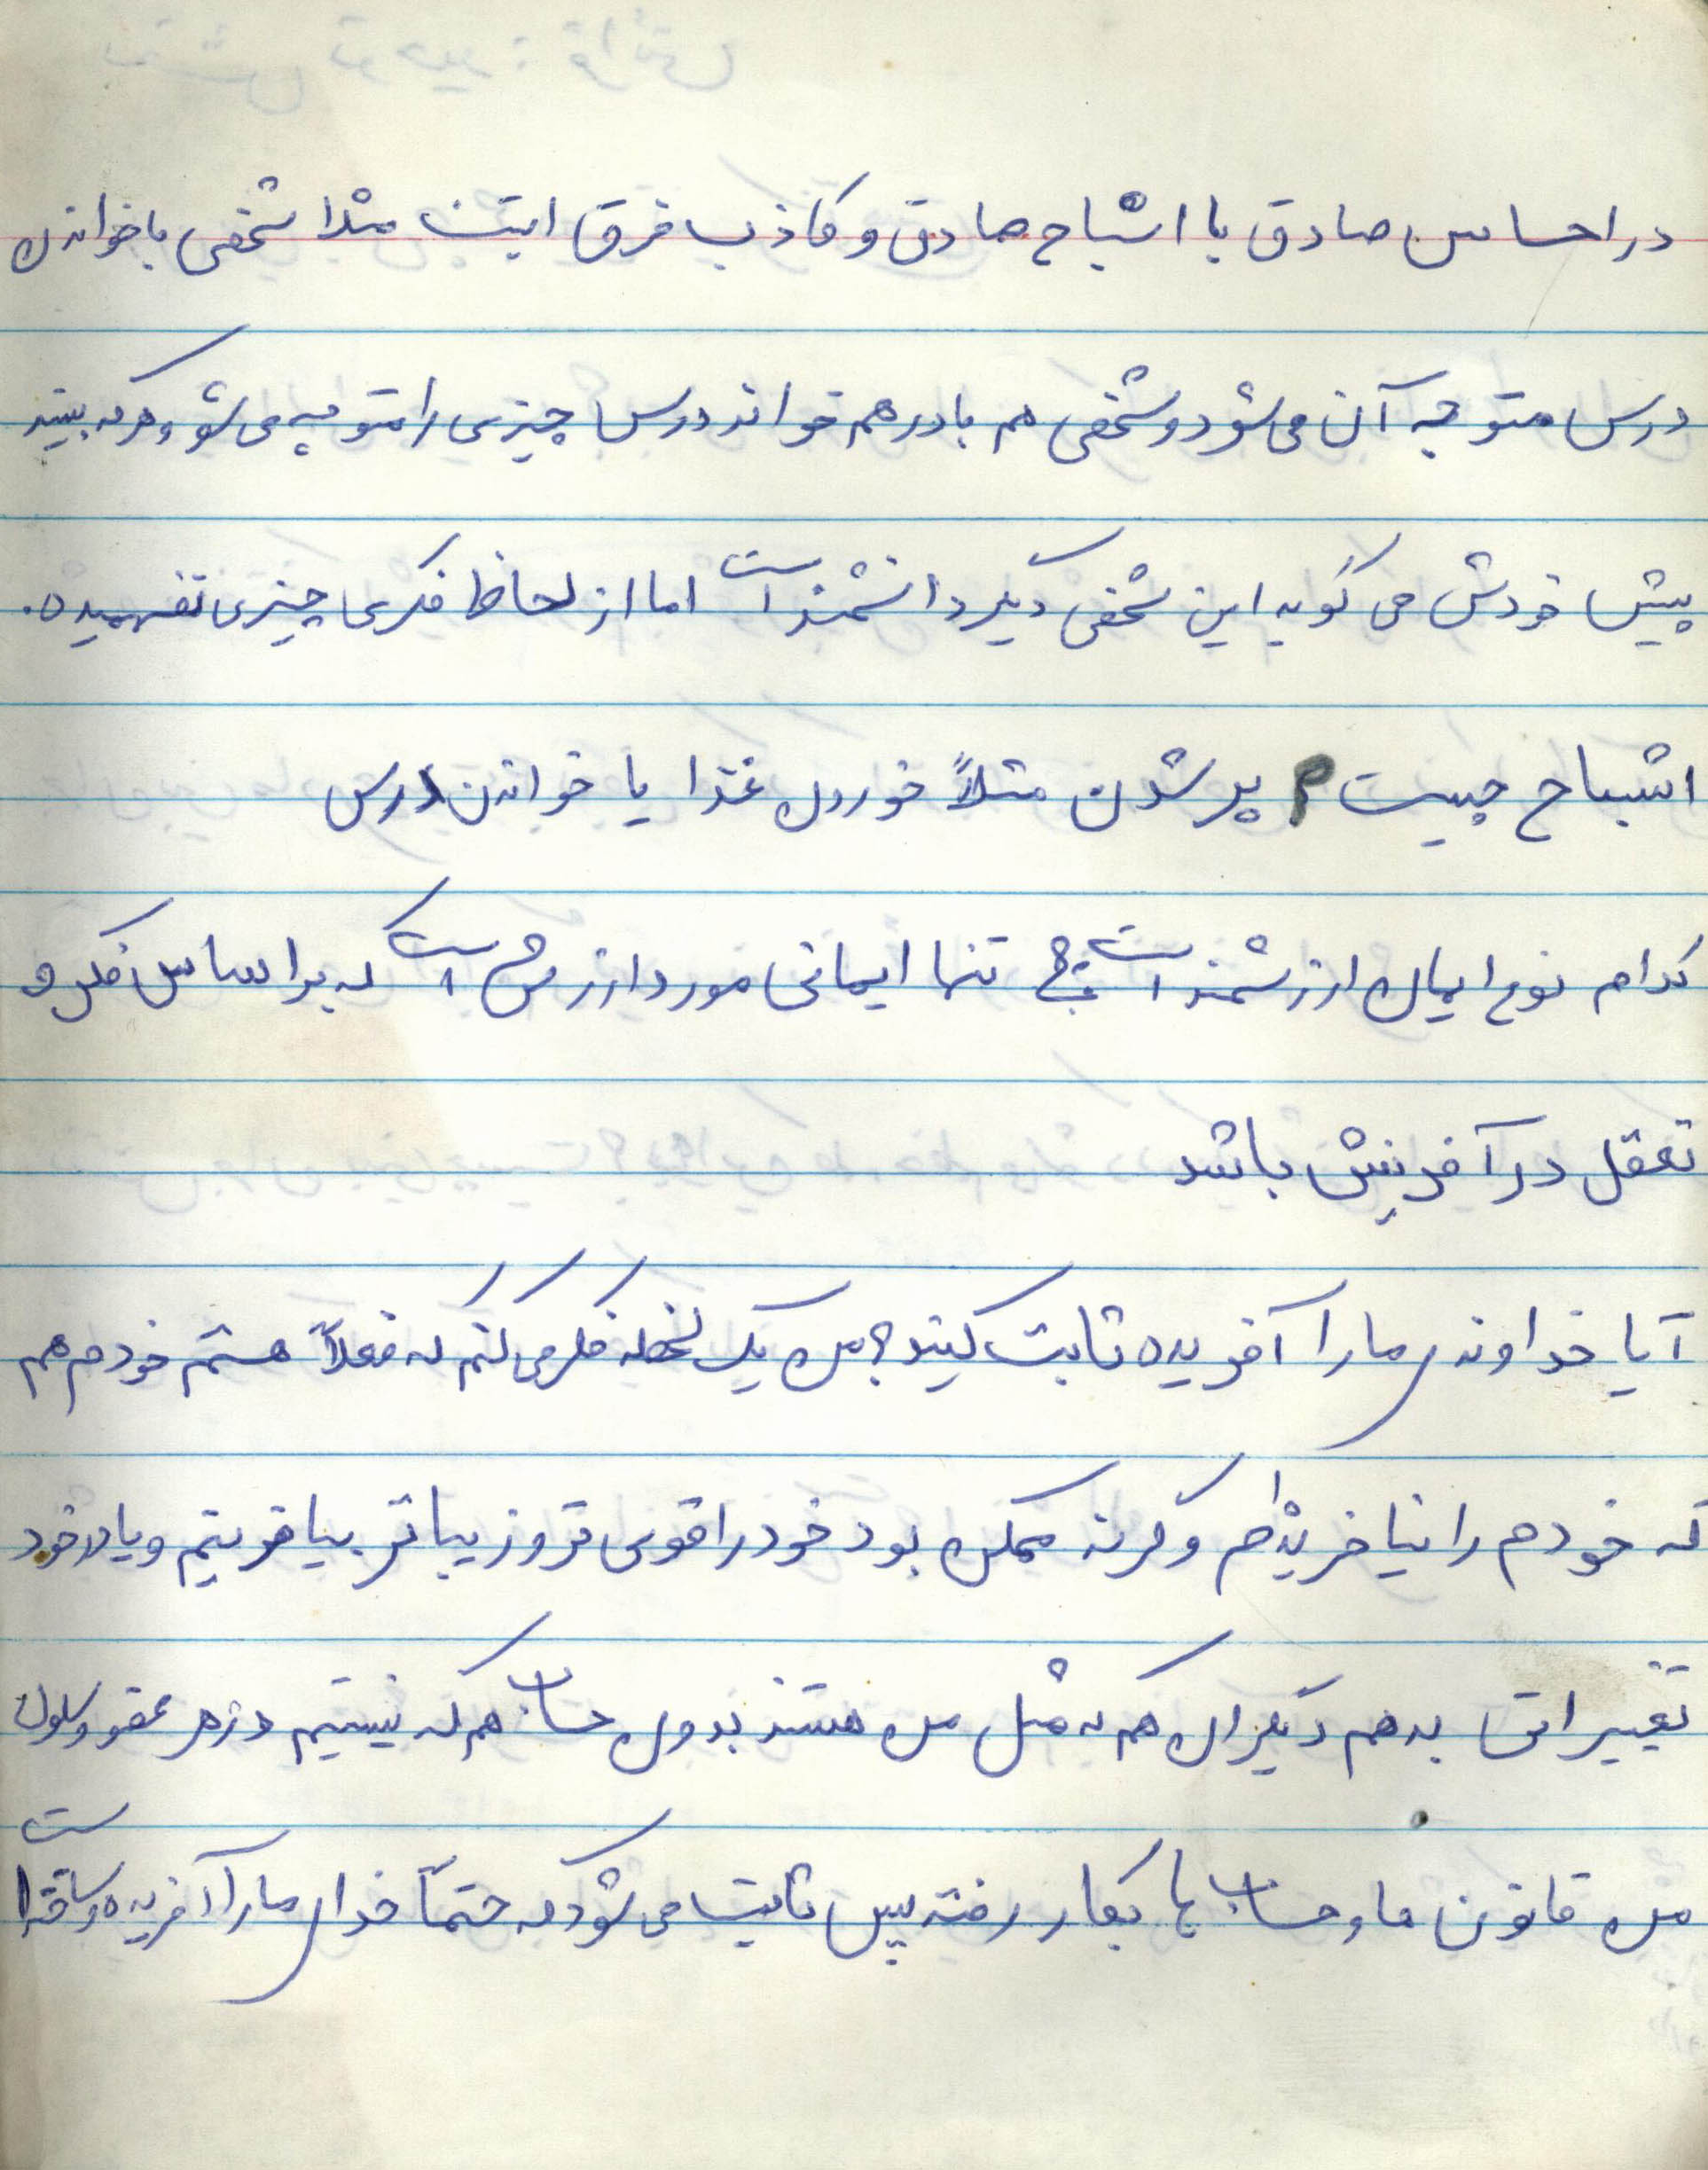 در احساس صادق با اشباح صادق و کاذب فرق اینست مثلا شخصی با خواندن
درس متوجه آن می‌شود و شخصی هم با درهم خواند درس چیزی را متوجه می‌شو و هر که ببیند
پیش خودش می گوید این شخص دیگر دانشمند است اما از لحاظ فکری چیزی نفهمیده.
اشباح چیست؟ پر شدن مثلاً خوردن غذا یا خواندن درس
کدام نوع ایمان ارزشمند است؟ ج تنها ایمانی مورد ارزش است که براساس فکر و
تعقل در آفرینش باشد
آیا خداوند ما را آفریده ثابت کنید؟ من یک لحظه فکر می کنم که فعلاً هستم خودم هم
که خودم را نیافریده‌ام وگرنه ممکن بود خود را قوی تر و زیباتر بیافرینم و یا در خود
تغییراتی بدهم دیگران هم که مثل من هستند بدون حساب هم که نیستیم در هر عضو و سلول
من قانون ها و حساب ها بکار رفته پس ثابت می شود که حتماً خدا ما را آفریده و ساخته است